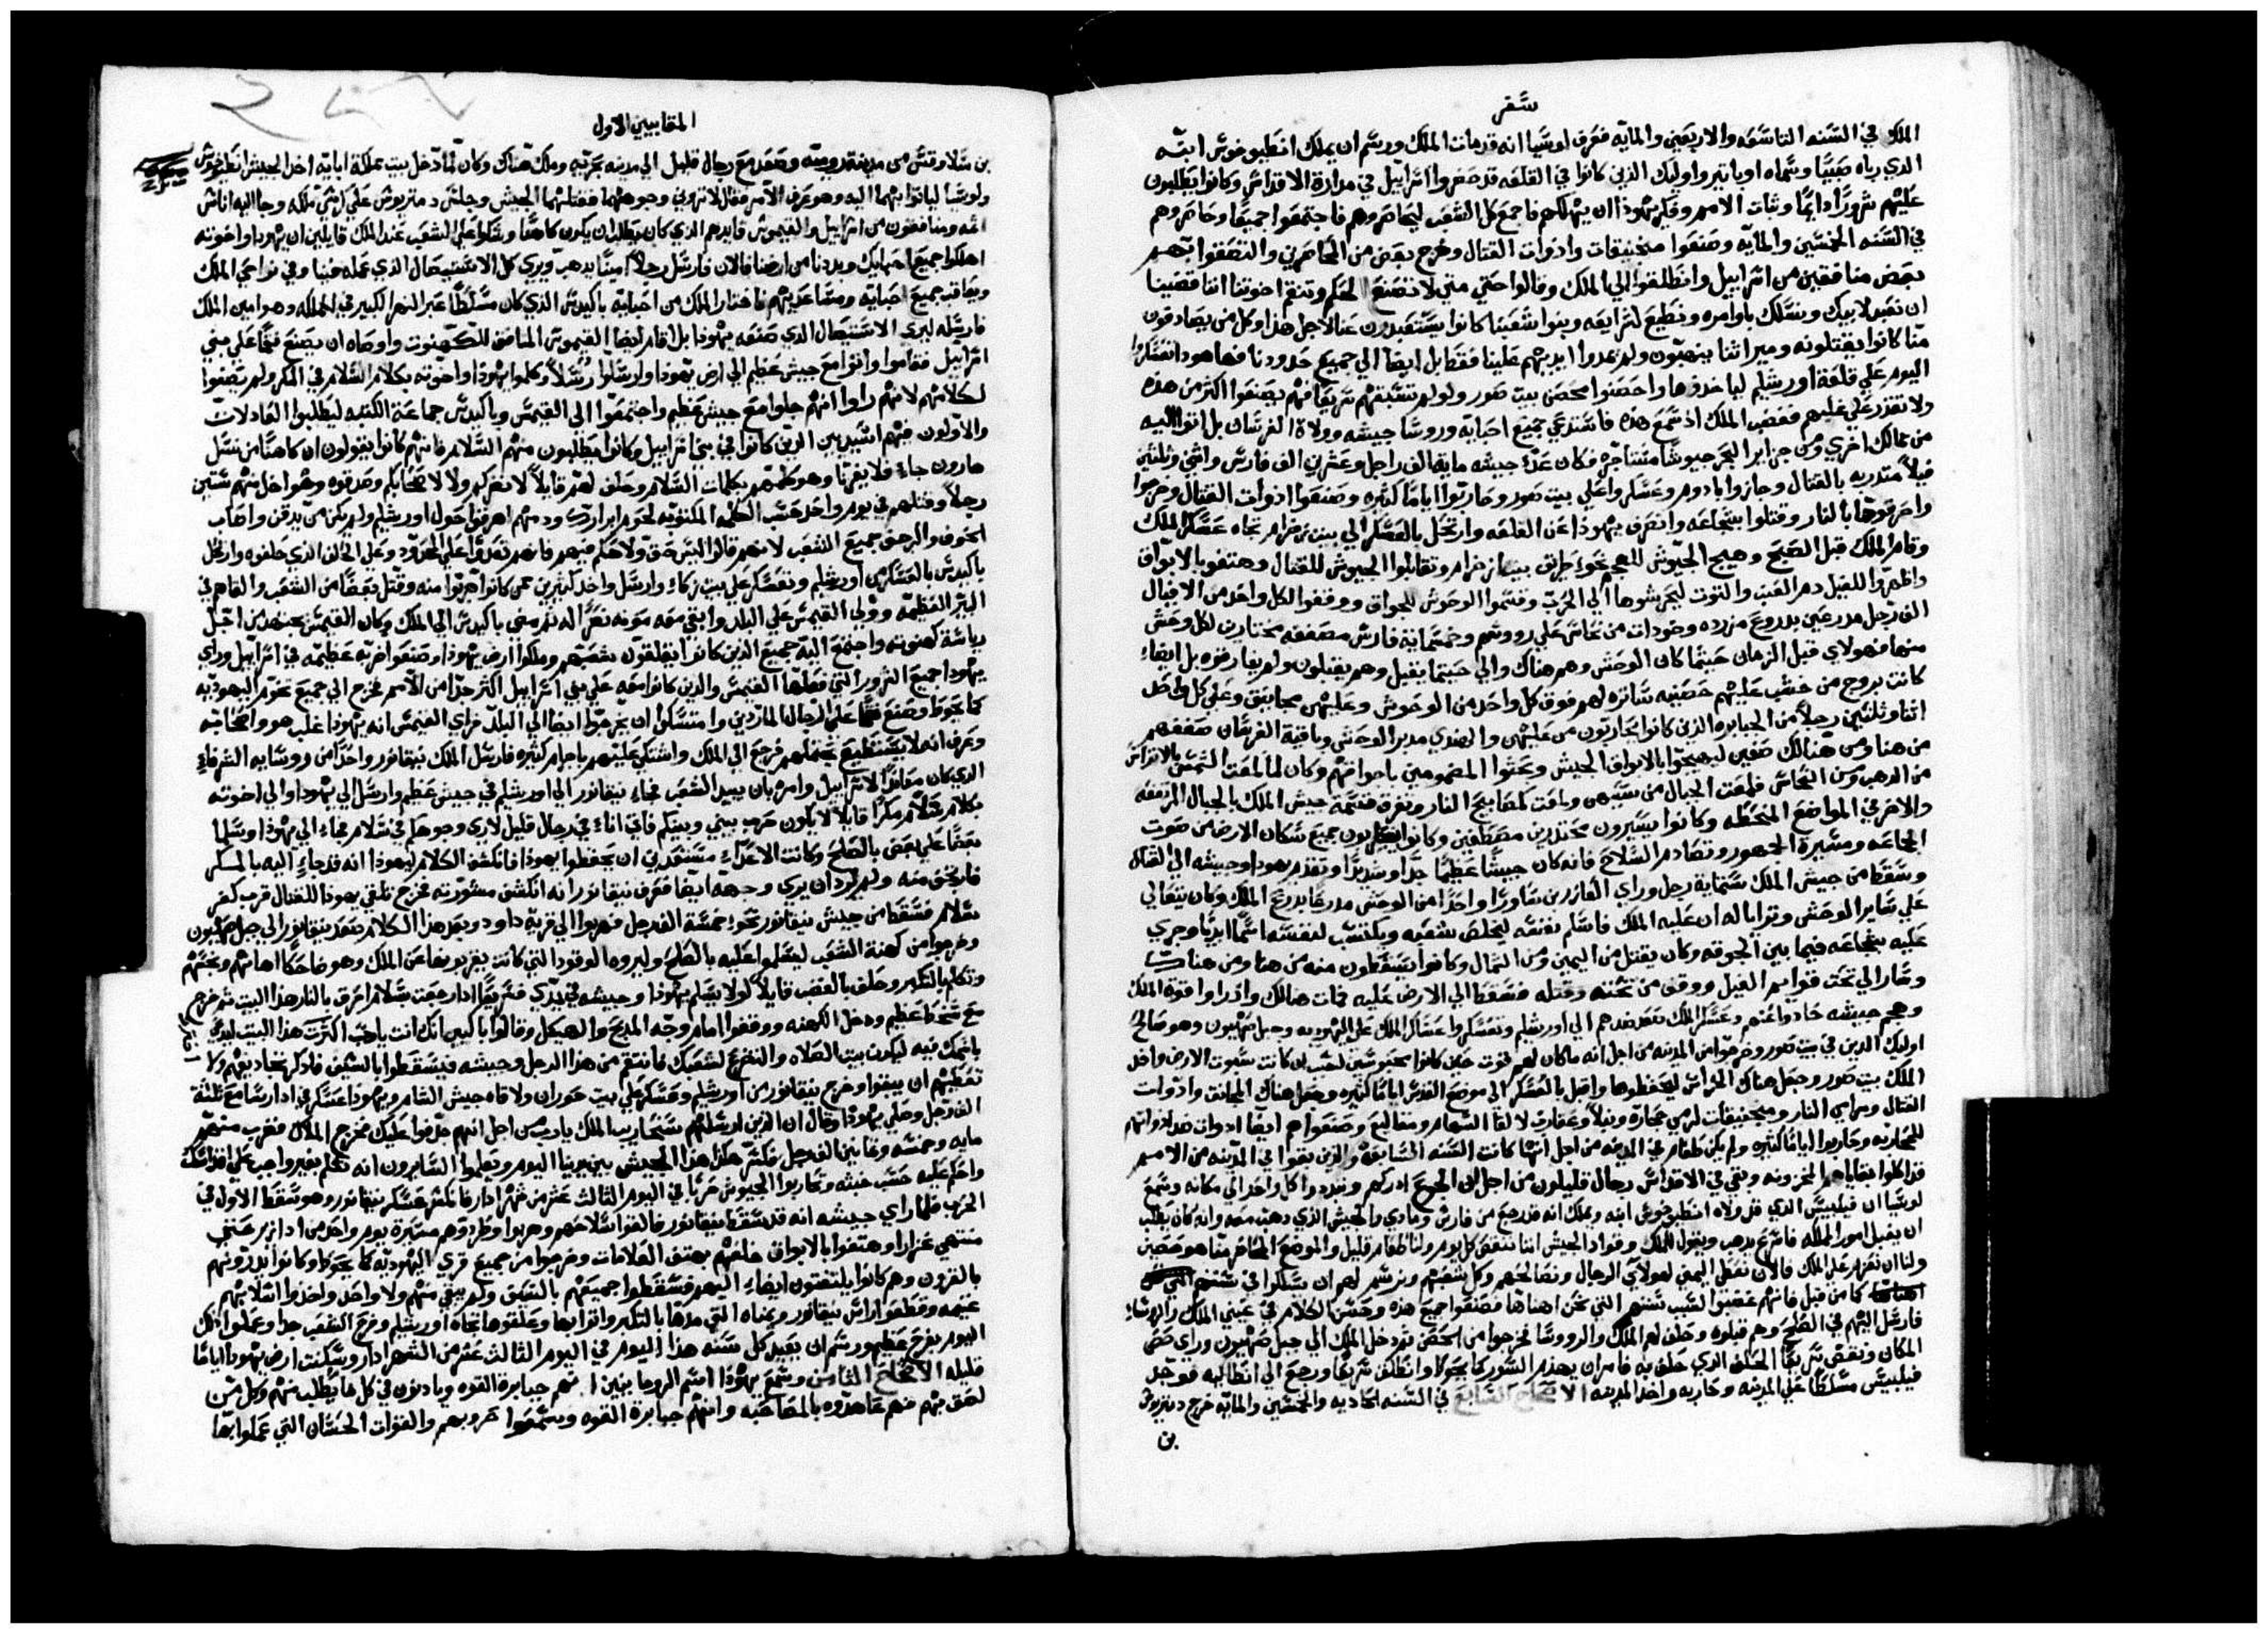 سفر
الملك في السنه التاسعه والاربعين والمايه فعرف لوسيا انه قد مات الملك ورسم ان يملك انطيوخوس ابنه
الدي رباه صبيا وسماه اوباتير واوليك الذين كانوا في القلعه قد حصروا اسرايل في مدارة الاقداس وكانوا يطلبون
عليهم شرورا دايما وثبات الامم وفكر يهودا ان يهلكهم فاجمع كل الشعب ليحاصروهم فاجتمعوا جميعا وحاصروهم
في السنه الخمسين والمايه وصنعوا منجنيقات وادوات القتال وخرج بعض من المحاصرين والتصقوا بهم
بعض منافقين من اسراييل وانطلقوا الي الملك وقالوا حتي متي لا تصنع الحكم وتنتقم اخوتنا اننا قضينا
ان نتعبد لابيك ونسلك باوامره ونطيع لشرايعه وبنوا شعبنا كانوا يستبعدون عنا لاجل هذا وكل من يصادفون
منا كانوا يقتلونه وميراثنا ينهبون ولم يمدوا ايديهم علينا فقط بل ايضا الي جميع حدودنا فها هوذا تعسكروا
اليوم علي قلعة اورشليم لياخذوها واحصنوا محصن بيت صور ولو لم تسبقهم سريعا فهم يصنعوا اكثر من هذه
ولا تقدر علي غلبهم فغضب الملك اذ سمع هذه فاستدعي جميع احبايه وروسا جيشه وولاة الفرسان بل اتوا اليه
من ممالك اخري ومن جزاير البحر جيوشا مستاجره فكان عدد جيشه مايه الف راجل وعشرين الف فارس واثني وثلثين
فيلا متدربه بالقتال وجازوا بادوم وعسكروا علي بيت صور وحاربوا اياما كثيره وصنعوا ادوات القتال وخرجوا
واحرقوها بالنار وقتلوا بشجاعه وانصرف يهوذا عن القلعه وارتحل بالعسكر الي بيت زخرام تجاه عسكر الملك
وقام الملك قبل الصبح وهيج الجيوش للهجم نحو طريق بيت زخرام وتقابلوا الجيوش للقتال وهتفوا بالابواق
واظهروا للفيل دم العنب والتوت ليحرشوها الي الحرب وقسموا الوحوش للجواق ووقفوا لكل واحد من الافيال
الف رجل مدرعين بدروع مزرده وخودات من نحاس علي رووسهم وخمسمايه فارس مصففه مختارين لكل وحش
منها فهولاي قبل الزمان حيثما كان الوحش وهم هناك والي حيثما يقبل وهم يقبلون ولم يفارقوه بل ايضا
كانت بروج من خشب عليهم حصينه ساتره لهم فوق كل واحد من الوحوش وعليهن مجانيق وعلي كل
اثنا وثلثين رجلا من الجبابره الذين كانوا يحاربون من عليهن والهندي مدبر الوحش وباقية الفرسان صففهم
من هنا ومن هنالك صفين ليهيجوا بالابواق الجيش ويحثوا المضمومين باجواقهم وكان لما لمعت الشمس بالاتراس
من الدهب ومن النحاس فلمعت الجبال من سبيهن ولمعت كمصابيح النار وتفرقت قسمه جيش الملك بالجبال المرتفعه
والاخر في المواضع المنحطه وكانوا يسيرون محتدرين مصطفين وكانوا يضطربون جميع سكان الارض من صوت
الجماعه ومسيرة الجمهور وتصادم السلاح فانه كان جيشا عظيما جدا وشديدا وتقدم يهودا وجيشه الي القتال
وسقط من جيش الملك ستمايه رجل وراي العازر بن ساورا واحدا من الوحش مدرعا بدرع الملك وكان يتعالي
علي ساير الوحش وترايا له ان عليه الملك فاسلم نفسه ليخلص شعبه ويكتسب لنفسه اسما ابديا وجري
عليه بشجاعه فيما بين الجوقه وكان يقتل من اليمين ومن الشمال وكانوا يسقطون منه من هنا ومن هناك
وصار الي تحت قوايم الفيل ووقف من تحته وقتله فسقط الي الارض عليه فمات هنالك واذ راوا قوة الملك
وهجم جيشه حادوا عنهم وعسكر الملك تصعد ضدهم الي اورشليم وتعسكروا عساكر الملك علي اليهوديه وجبل صهيون وهو صالح
اوليك الدين في بيت صور وخرجوا من المدينه من اجل انه ما كان لهم قوت حين كانوا محبوسين لسبب ان كانت سبوت الارض واخذ
الملك بيت صور وجعل هناك الحراس ليحفظوها واقبل بالعسكر الي موضع القدس اياما كثيره وجعل هناك المجانيق وادوات
القتال ومرامي النار ومنجنيقات لرمي حجاره ونبلا وعقارب لالقا السهام ومقاليع وصنعوا هم ايضا ادوات ضد ادواتهم
للمحاربه وحاربوا اياما كثيره ولم يكن طعام في المدينه من اجل انها كانت السنه السابعه والذين بقوا في المدينه من الامم
قد اكلوا بقايا المخزونه وبقي في الاقداس رجال قليلون من اجل ان الجوع ادركهم وتبددوا كل واحد الي مكانه وسمع
لوسيا ان فيلبس الذي قد ولاه انطيوخوس ابنه ويملك انه قد رجع من فارس ومادي والجيش الذي دهب معه وانه كان يطلب
ان يقبل امور الملكه فاسرع يدهب ويقول للملك وقواد الجيش اننا ننقص كل يوم ولنا طعام قليل والموضع المحاصر منا هو حصين
ولنا ان نهتم علي الملك فالان نعطي اليمين لهولاي الرجال ونصالحهم وكل شعبهم ونرسم لهم ان يسلكوا في سننهم
كما من قبل فانهم غضبوا لسبب سننهم التي نحن اهناها فصنعوا جميع هذه وحسن الكلام في عيني الملك والروسا
فارسل اليهم في الصلح وهم قبلوه وحلف لهم الملك والرووسا فخرجوا من الحصن ثم دخل الملك الي جبل صهيون وراي حصن
المكان ونقض سريعا الحلف الذي حلف به فامر ان يهدم السور كما يحوط وانطلق سريعا ورجع الي انطاكيه فوجد
فيلبس مسلطا علي المدينه وحاربه واخذ المدينه الاصحاح السابع في السنه الحاديه والخمسين والمايه خرج دمتريوس
بن
المقابيين الاول
بن سلاوقس من مدينة روميه وصعد مع رجال قليل الي مدينه بحريه وملك هناك وكان لما دخل بيت مملكة ابايه اخذ الجيش انطيخوس
ولوسيا لياتوا بهما اليه وهو عرف الامر فقال لا تروني وجوههما فقتلهما الجيش وجلس دمتريوس علي كرسي ملكه وجا اليه اناس
اثمه ومنافقون من اسراييل والقيموس قايدهم الذي كان يطلب ان يكون كاهنا وشكوا علي الشعب عند الملك قايلين ان يهودا واخوته
اهلكوا جميع احبايك وبددنا من ارضنا فالان فارسل رجلا امينا يدهب ويري كل الاستيصال الذي عمله فينا وفي نواحي الملك
ويعاقب جميع احبايه ومساعديهم فاختار الملك من احبايه باكيدس الذي كان مسلطا عبر النهر الكبير في المملكه وهو امين الملك
فارسله ليري الاستيصال الذي صنعه يهودا بل اقام ايضا القيموس المنافق للكهنوت واوصاه ان يصنع نقما علي بني
اسراييل فقاموا واتوا مع جيش عظيم الي ارض يهودا وارسلوا رسلا وكلموا يهودا واخوته بكلام السلام في المكر ولم يصغوا
لكلامهم لانهم راوا انهم جاوا مع جيش عظيم واجتمعوا الي القيمس وباكيدس جماعة الكتبه ليطلبوا العادلات
والاولون منهم اسيديين الذين كانوا في بني اسراييل وكانوا يطلبون منهم السلام فانهم كانوا يقولون ان كاهنا من نسل
هارون جاء فلا يغرنا وهو كلمهم بكلمات السلام وحلف لهم قايلا لا نضركم ولا لاصحابكم وصدقوه وهو اخذ منهم ستين
رجلا وقتلهم في يوم واحد حسب الكلمه المكتوبه لحوم ابرارك ودمهم اهرقوا حول اورشليم ولم يكن من يدفن واصاب
الخوف والرجف جميع الشعب لانهم قالوا ليس حق ولا حكم فيهم فانهم تعدوا علي الحدود وعلي الحلف الذي حلفوه وارتحل
باكيدس بالعسكر من اورشليم وتعسكر علي بيت زكاء وارسل واخذ كثيرين ممن كانوا هربوا منه وقتل بعضا من الشعب والقاهم في
البير العظيمه وولي القيمس علي البلد وابقي معه معونه نصرا له ثم مضي باكيدس الي الملك وكان القيمس يجتهد من اجل
رياسة كهنوته واجتمع اليه جميع الذين كانوا يقلقون شعبهم وملكوا ارض يهودا وصنعوا ضربه عظيمه في اسراييل وراي
يهودا جميع الشرور التي فعلها القيمس والذين كانوا معه علي بني اسراييل اكثر جدا من الامم فخرج الي جميع تخوم اليهوديه
كما يحوط وصنع نقما علي الرجال الماردين وامتسكوا ان يخرجوا ايضا الي البلد فراي القيمس انه يهودا غلب هو واصحابه
وعرف انه لا يستطيع يحتملهم فرجع الي الملك واشتكي عليهم باجرام كثيره فارسل الملك نيقانور واحدا من رووسايه الشرفاء
الذي كان معاندا لاسراييل وامره بان يبيد الشعب فجاء نيقانور الي اورشليم في جيش عظيم وارسل الي يهودا والي اخوته
بكلام سلام مكرا قايلا لا يكون حرب بيني وبينكم فاني اتاء في رجال قليل لاري وجوهكم في سلام فجاء الي يهودا وسلما
بعضا علي بعض بالصلح وكانت الاعداء مستعدين ان يخطفوا يهودا فانكشف الكلام ليهودا انه قد جاء اليه بالمكر
فارتجف منه ولم يرد ان يري وجهه ايضا فعرف نيقانور انه انكشف مشورته فخرج تلقي يهودا للقتال قرب كفر
سلام فسقط من جيش نيقانور نحو خمسة الف رجل فهربوا الي قرية داود وبعد هذا الكلام صعد نيقانور الي جبل صهيون
وخرجوا من كهنة الشعب ليسلموا عليه بالصلح وليروه الوقود التي كانت يقربونها عن الملك وهو ضاحكا اهانهم ونجسهم
وتكلم بالتكبر وحلف بالغضب قايلا لولا يسلم يهودا وجيشه في يدي فسريعا اذا رجعت بسلام احرق بالنار هذا البيت ثم خرج
مع سخط عظيم ودخل الكهنه ووقفوا امام وجه المدبح والهيكل وقالوا باكيين انك انت يا رب اخترت هذا البيت ليدعي
باسمك فيه ليكون بيت الصلاه والتضرع لشعبك فانتقم من هذا الرجل وجيشه فيسقطوا بالسيف فاذكر تجاديفهم ولا
تعطيهم ان يبقوا وخرج نيقانور من اورشليم وعسكر علي بيت حوران ولاقاه جيش الشام ويهودا عسكر في ادارسا مع ثلثة
الف رجل وصلي يهودا وقال ان الذين ارسلهم سنحاريب الملك يا رب من اجل انهم جدفوا عليك فخرج الملاك فضرب منهم
مايه وخمسه وثمانين الف رجل فكسر هكذا هذا الجيش بين يدينا اليوم ويعلموا السايرون انه تكلم بغير واجب علي اقداسك
واحكم عليه حسب خبثه وتحاربوا الجيوش حربا في اليوم الثالث عشر من شهر ادار فانكسر عسكر نيقانور وهو سقط الاول في
الحرب فلما راي جيشه انه قد سقط نيقانور فالقوا سلاحهم وهربوا وطردوهم مسيرة يوم واحد من ادازير حتي
منتهي غزارا وهتفوا بالابواق خلفهم بهتف العلامات وخرجوا من جميع قري اليهوديه كما يحوط وكانوا يدرونهم
بالقرون وهم كانوا يلتفتون ايضا اليهم فسقطوا جميعهم بالسيف ولم يبقي منهم ولا واحد واخذوا اسلابهم
غنيمه وقطعوا راس نيقانور ويمناه التي مدها بالتكبر واتوا بها وعلقوها تجاه اورشليم وفرح الشعب جدا وعملوا ذلك
اليوم بفرح عظيم ورسم ان يعيد كل سنه هذا اليوم في اليوم الثالث عشر من الشهر ادار وسكنت ارض يهودا اياما
قليله الاصحاح الثامن وسمع يهوذا اسم الروما نيين انهم جبابرة القوه ويادنون في كل ما يطلب منهم وكل من
لصق بهم فهم عاهدوه بالمصاحبه وانهم جبابرة القوه وسمعوا حروبهم والقوات الحسان التي عملوا بها